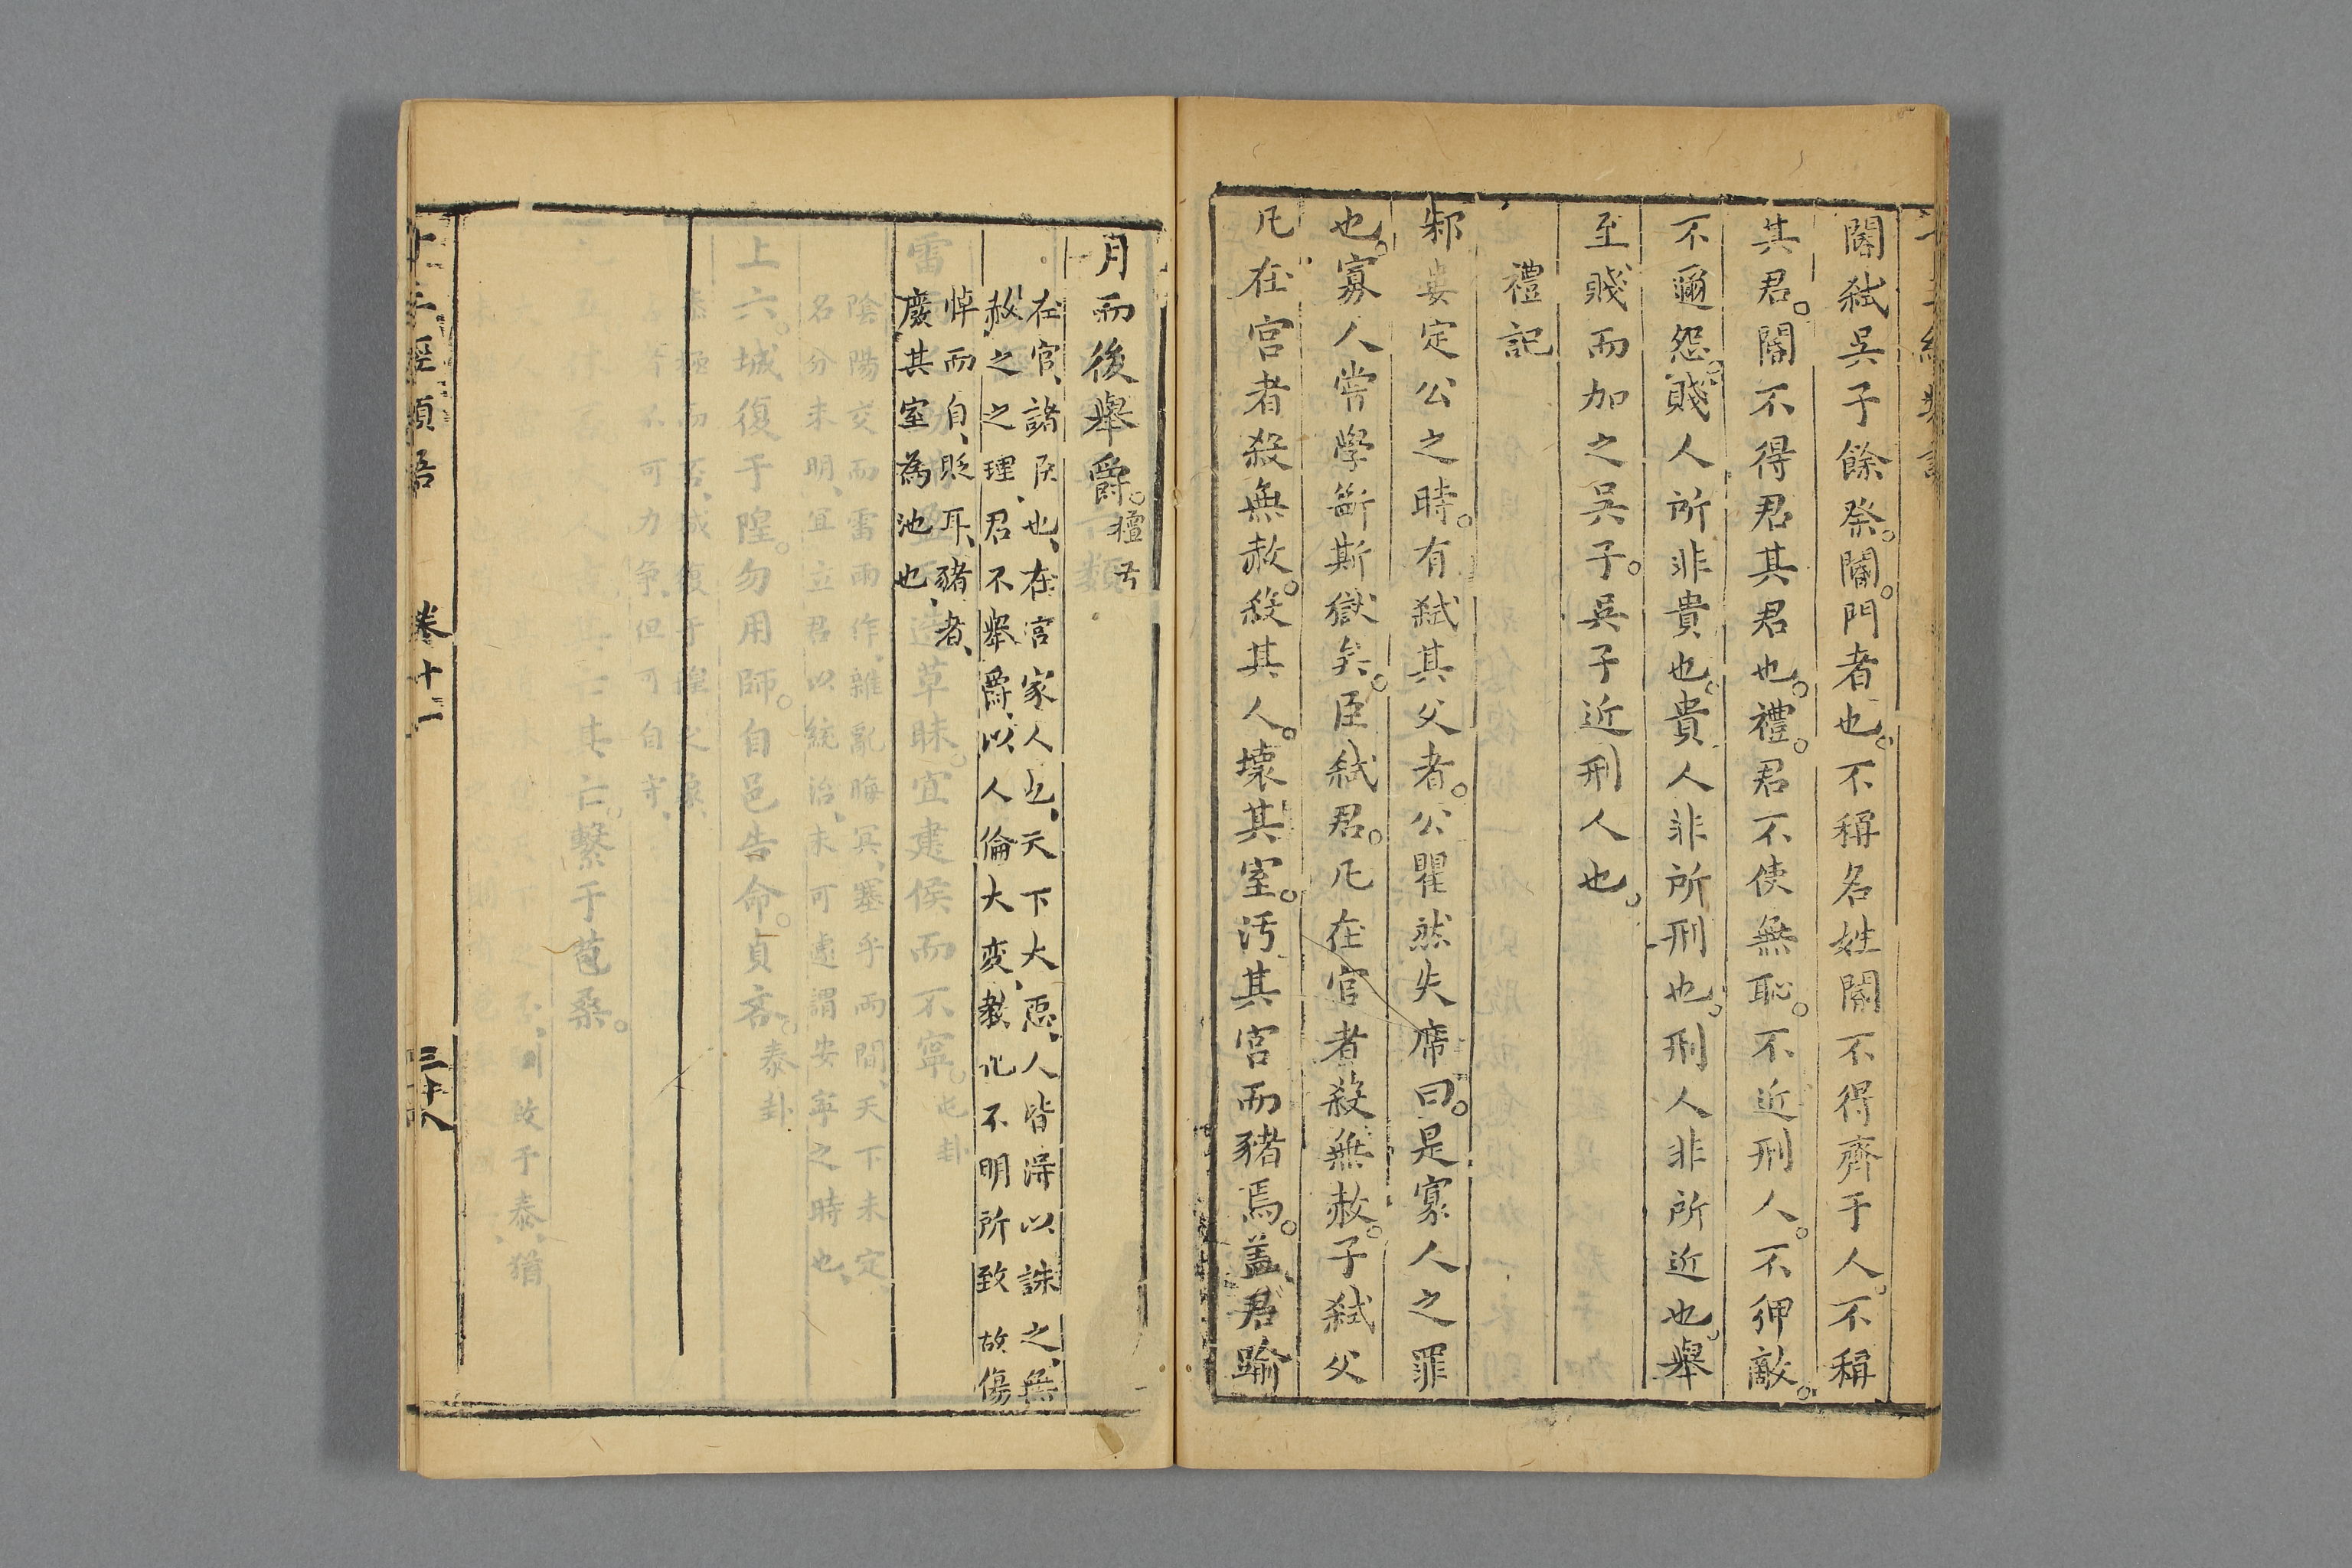 閽弑吳子餘祭。閽。門者也。不稱名姓閽不得齊于人。不稱
其君。閽不得君其君也。禮。君不使無恥。不近刑人。不狎敵。
不邇怨。賤人所非貴也。貴人非所刑也。刑人非所近也。舉
至賤而加之吳子。吳子近刑人也。
禮記
邾婁定公之時。有弑其父者。公瞿然失席曰。是寡人之罪
也。寡人嘗學斷斯獄矣。臣弑君。凡在官者殺無赦。子弑父
凡在宮者殺無赦。殺其人。壞其室。汚其宮而豬焉。盖君踰
月而後舉爵。檀弓
在官、諸臣也、在宮家人也、天下大惡、人皆得以誅之、無
赦之之理、君不舉爵、以人倫大変、教化不明所致故傷
悼而自、貶耳、豬者、
廢其室為池也、
十三經類語 卷十二 三十八